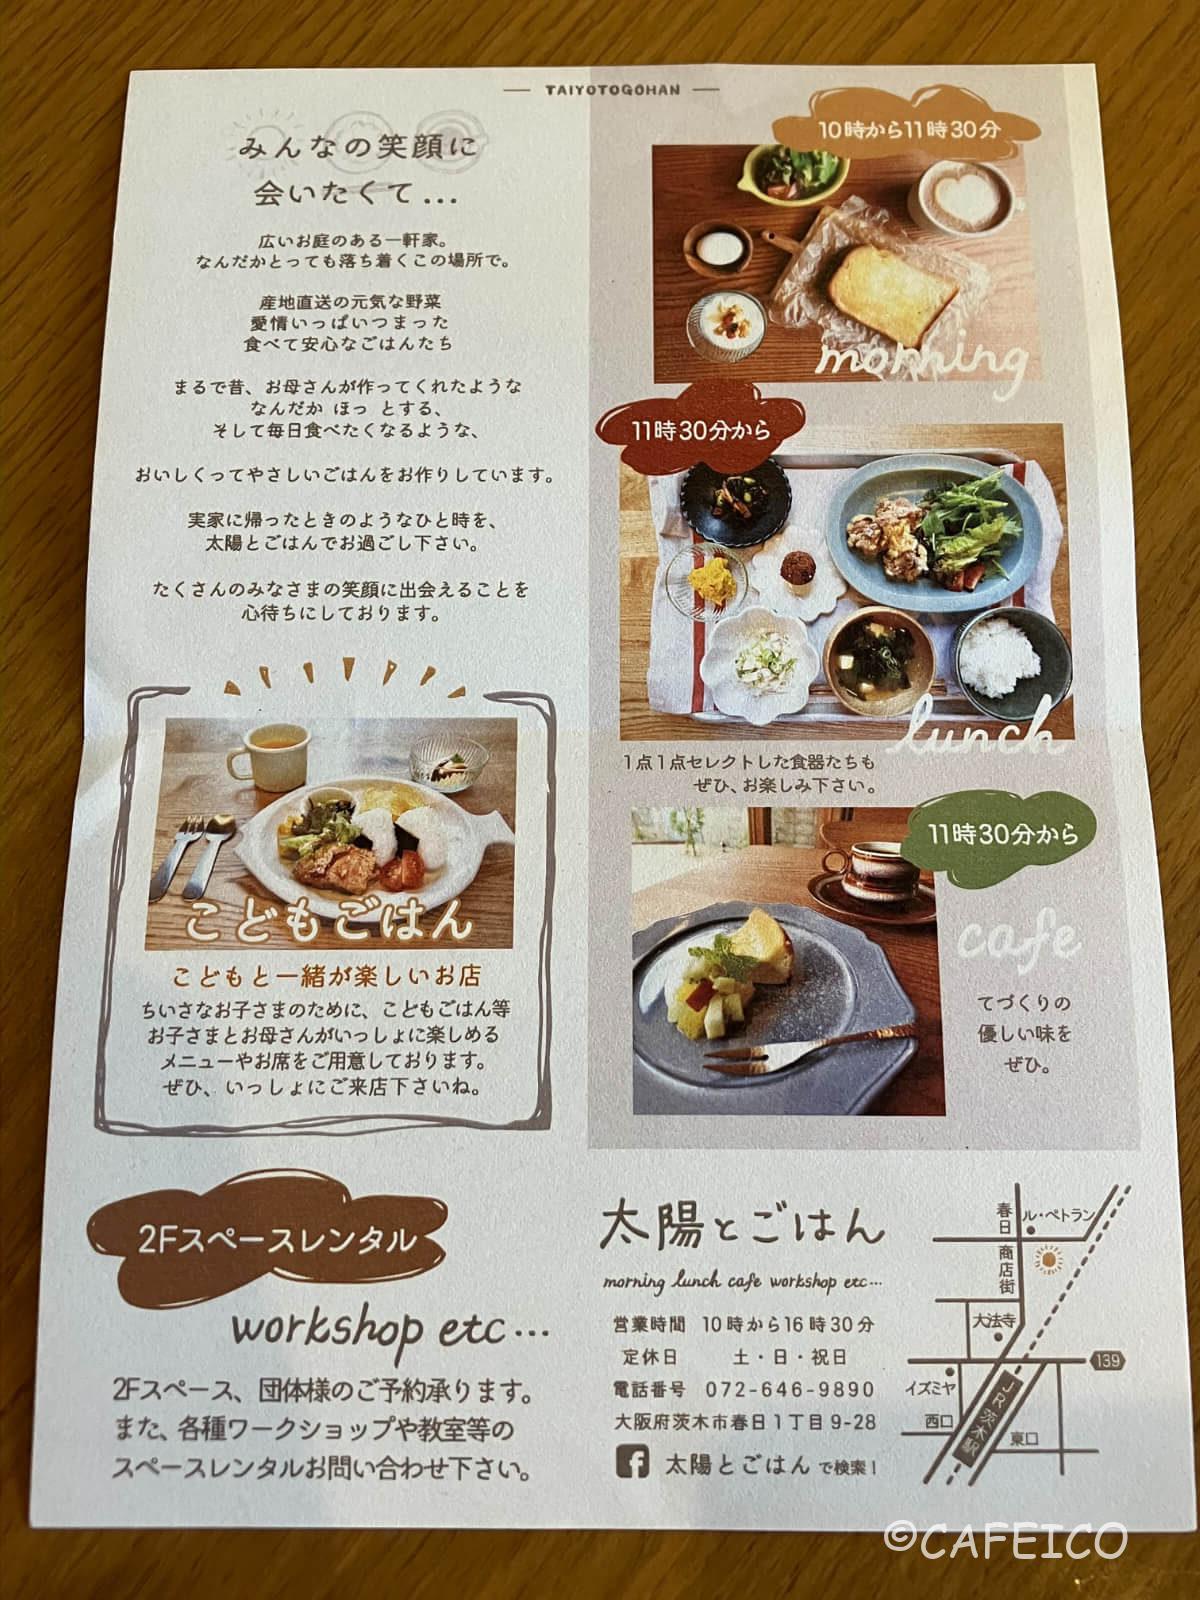 TAIYOTOGOHAN
みんなの笑顔に
会いたくて...
広いお庭のある一軒家。
なんだかとっても落ち着くこの場所で。
産地直送の元気な野菜
愛情いっぱいつまった
食べて安心なごはんたち
まるで昔、お母さんが作ってくれたような
なんだか ほっ とする、
そして毎日食べたくなるような、
おいしくってやさしいごはんをお作りしています。
実家に帰ったときのようなひと時を、
太陽とごはんでお過ごし下さい。
たくさんのみなさまの笑顔に出会えることを
心待ちにしております。
こどもごはん
こどもと一緒が楽しいお店
ちいさなお子さまのために、こどもごはん等
お子さまとお母さんがいっしょに楽しめる
メニューやお席をご用意しております。
ぜひ、いっしょにご来店下さいね。
2Fスペースレンタル
workshop etc...
2Fスペース、団体様のご予約承ります。
また、各種ワークショップや教室等の
スペースレンタルお問い合わせ下さい。
10時から11時30分
morning
11時30分から
lunch
1点1点セレクトした食器たちも
ぜひ、お楽しみ下さい。
11時30分から
cafe
てづくりの
優しい味を
ぜひ。
太陽とごはん
morning lunch cafe workshop etc...
営業時間 10時から16時30分
定休日 土・日・祝日
電話番号 072-646-9890
大阪府茨木市春日1丁目9-28
太陽とごはんで検索!
春日商店街
ル・ペトラン
大法寺
139
イズミヤ
西口
JR茨木駅
東口
©CAFEICO